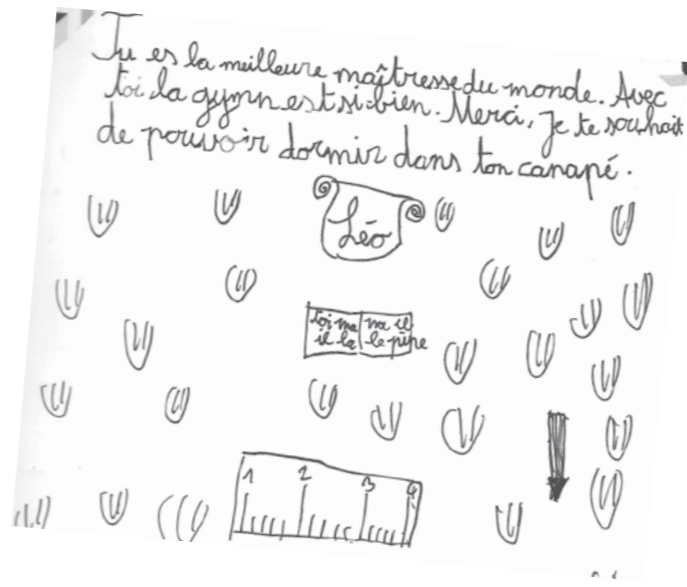 Tu es la meilleure maîtresse du monde. Avec
toi la gymn est si bien. Merci, je te souhait
de pouvoir dormir dans ton canapé.
Léo
toi ma ma il
il la le pipe
1 2 3 4